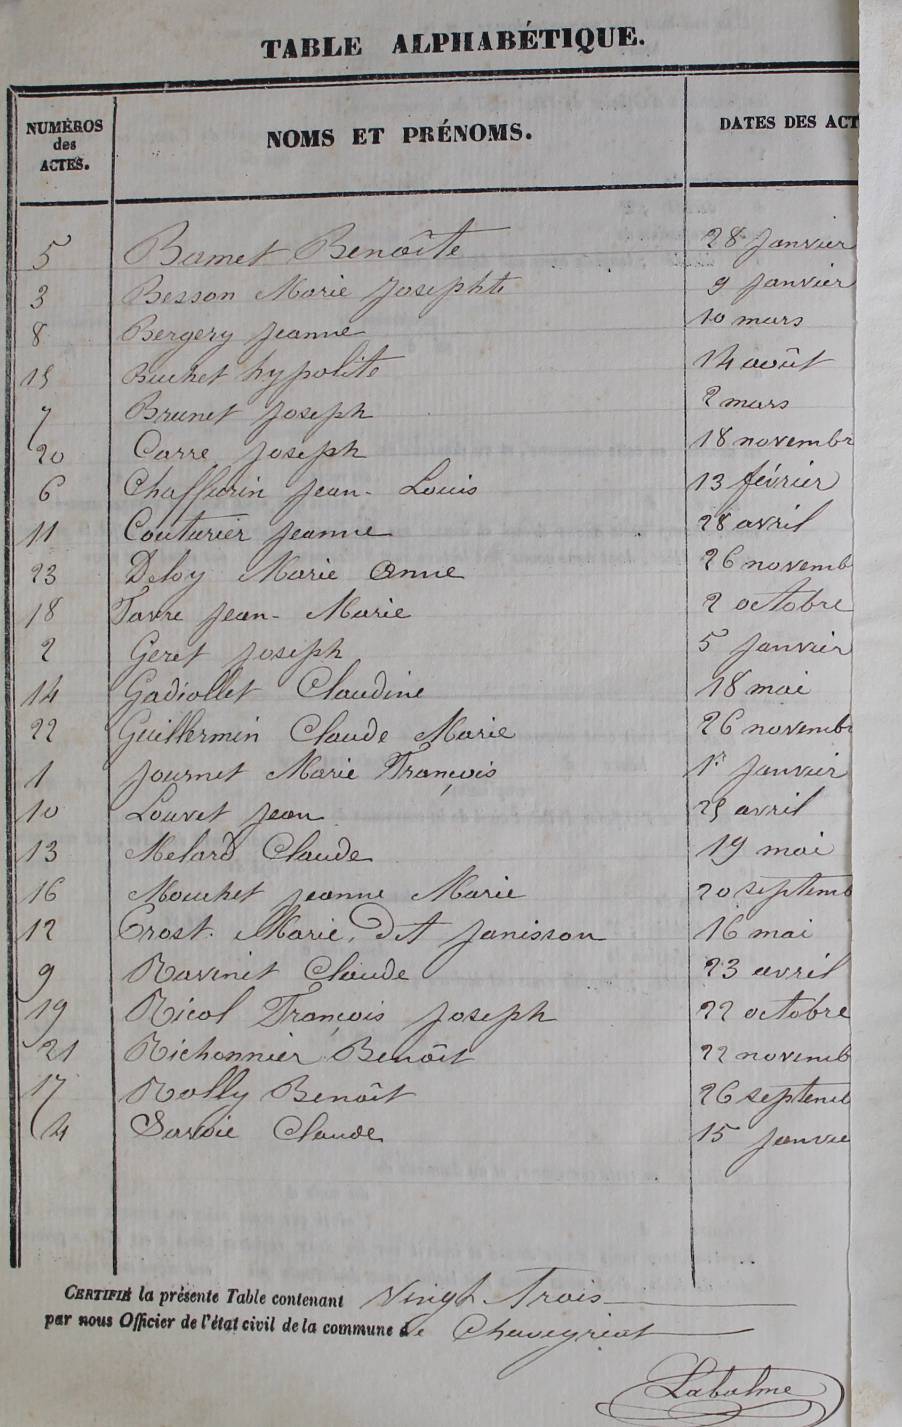 TABLE ALPHABÉTIQUE.
NUMÉROS des ACTES. NOMS ET PRÉNOMS. DATES DES ACT
5 Bamet Benoîte 28 Janvier
3 Besson Marie Josephte 9 Janvier
8 Bergery Jeanne 10 mars
15 Buchet hypolite 14 août
7 Brunet Joseph 2 mars
20 Carre Joseph 18 novembr
6 Chaffurin Jean-Louis 13 février
11 Couturier Jeanne 28 avril
23 Deloy Marie Anne 26 novemb
18 Favre Jean-Marie 2 octobre
2 Geret Joseph 5 Janvier
14 Gadiollet Claudine 18 mai
22 Guillermin Claude Marie 26 novemb
1 Journet Marie François 1r Janvier
10 Louvet Jean 25 avril
13 Melard Claude 19 mai
16 Mouchet Jeanne Marie 20 septemb
12 Prost. Marie, dit Janisson 16 mai
9 Ravinet Claude 23 avril
19 Ricol François Joseph 22 octobre
21 Richonnier Benoît 22 novemb
17 Rolly Benoît 26 septemb
4 Savoie Claude 15 Janvie
CERTIFIÉ la présente Table contenant Vingt Trois
par nous Officier de l'état civil de la commune de Chaveyriat
Labalme